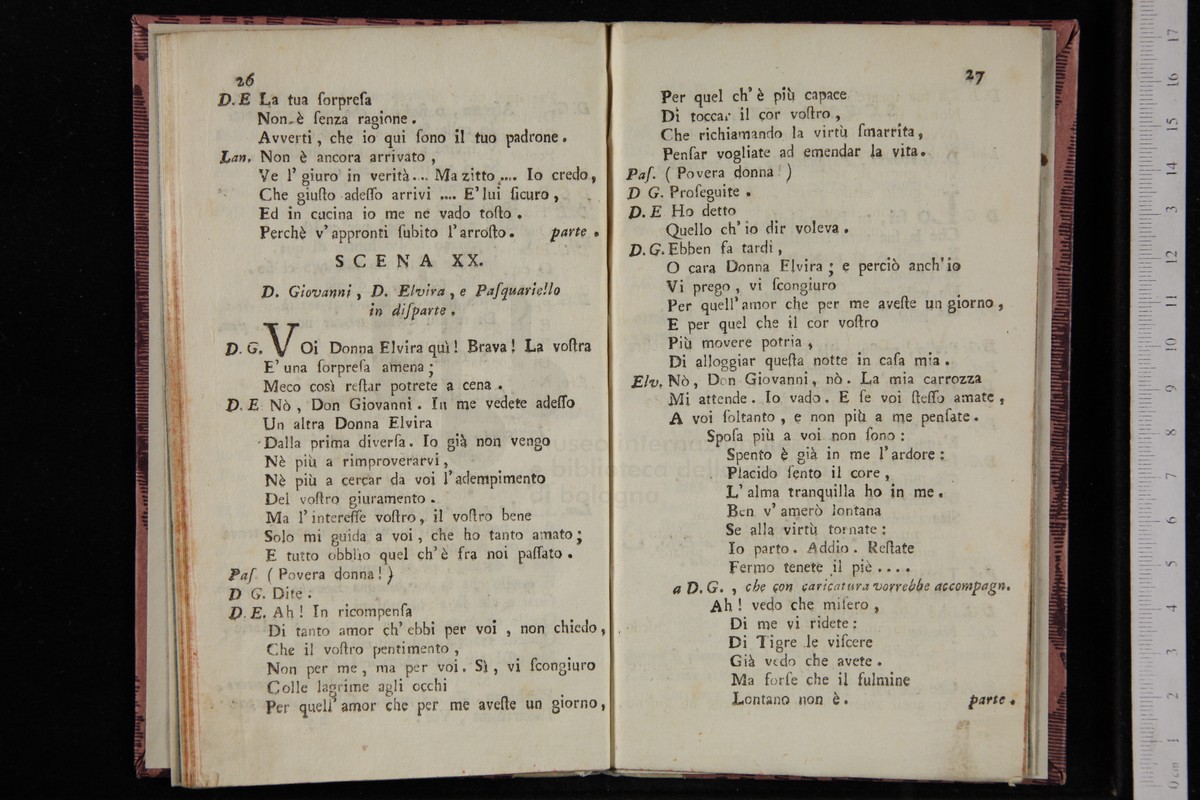 26
D.E La tua ſorpreſa
Non è ſenza ragione.
Avverti, che io qui ſono il tuo padrone.
Lan. Non è ancora arrivato,
Ve l'giuro in verità... Ma zitto.... Io credo,
Che giuſto adeſſo arrivi .... E'lui ſicuro,
Ed in cucina io me ne vado toſto.
Perchè v'appronti ſubito l'arroſto. parte.
SCENA XX.
D. Giovanni, D. Elvira, e Paſquariello
in diſparte.
D.G. VOi Donna Elvira quì! Brava! La voſtra
E'una ſorpreſa amena;
Meco così reſtar potrete a cena.
D.E Nò, Don Giovanni. In me vedete adeſſo
Un altra Donna Elvira
Dalla prima diverſa. Io già non vengo
Nè più a rimproverarvi,
Nè più a cercar da voi l'adempimento
Del voſtro giuramento.
Ma l'intereſſe voſtro, il voſtro bene
Solo mi guida a voi, che ho tanto amato;
E tutto obblìo quel ch'è fra noi paſſato.
Paſ. (Povera donna!)
D G. Dite.
D.E. Ah! In ricompenſa
Di tanto amor ch'ebbi per voi, non chiedo,
Che il voſtro pentimento,
Non per me, ma per voi. Sì, vi ſcongiuro
Colle lagrime agli occhi
Per quell'amor che per me aveſte un giorno,
27
Per quel ch'è più capace
Di toccar il cor voſtro,
Che richiamando la virtù ſmarrita,
Penſar vogliate ad emendar la vita.
Paſ. (Povera donna!)
D G. Proſeguite.
D.E Ho detto
Quello ch'io dir voleva.
D.G. Ebben fa tardi,
O cara Donna Elvira; e perciò anch'io
Vi prego, vi ſcongiuro
Per quell'amor che per me aveſte un giorno,
E per quel che il cor voſtro
Più movere potria,
Di alloggiar queſta notte in caſa mia.
Elv. Nò, Don Giovanni, nò. La mia carrozza
Mi attende. Io vado. E ſe voi ſteſſo amate,
A voi ſoltanto, e non più a me penſate.
Spoſa più a voi non ſono:
Spento è già in me l'ardore:
Placido ſento il core,
L'alma tranquilla ho in me.
Ben v'amerò lontana
Se alla virtù tornate:
Io parto. Addio. Reſtate
Fermo tenete il piè....
a D.G., che con caricatura vorrebbe accompagn.
Ah! vedo che miſero,
Di me vi ridete:
Di Tigre le viſcere
Già vedo che avete.
Ma forſe che il fulmine
Lontano non è. parte.
museo internazionale
e biblioteca della
di bologna
0 cm 1 2 3 4 5 6 7 8 9 10 11 12 13 14 15 16 17